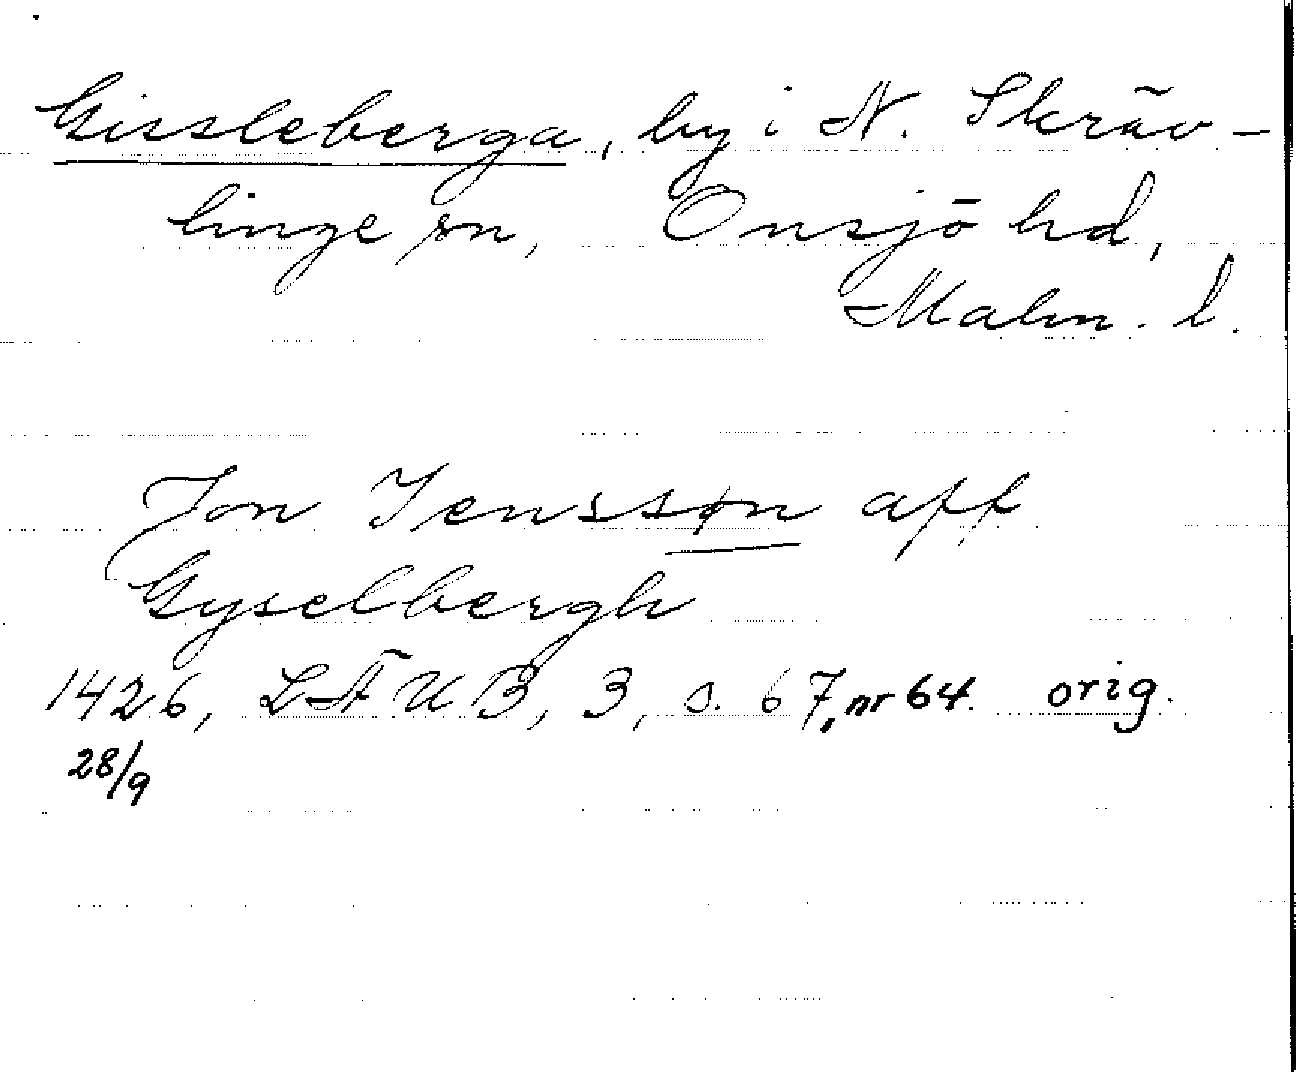 Gissleberga, by i N. Skräv-
linge sn, Onsjö hd,
Malm. l.
Jon Jenssøn aff
Gyselbergh
1426, LÄUB, 3, s. 67, nr 64. orig.
28/9